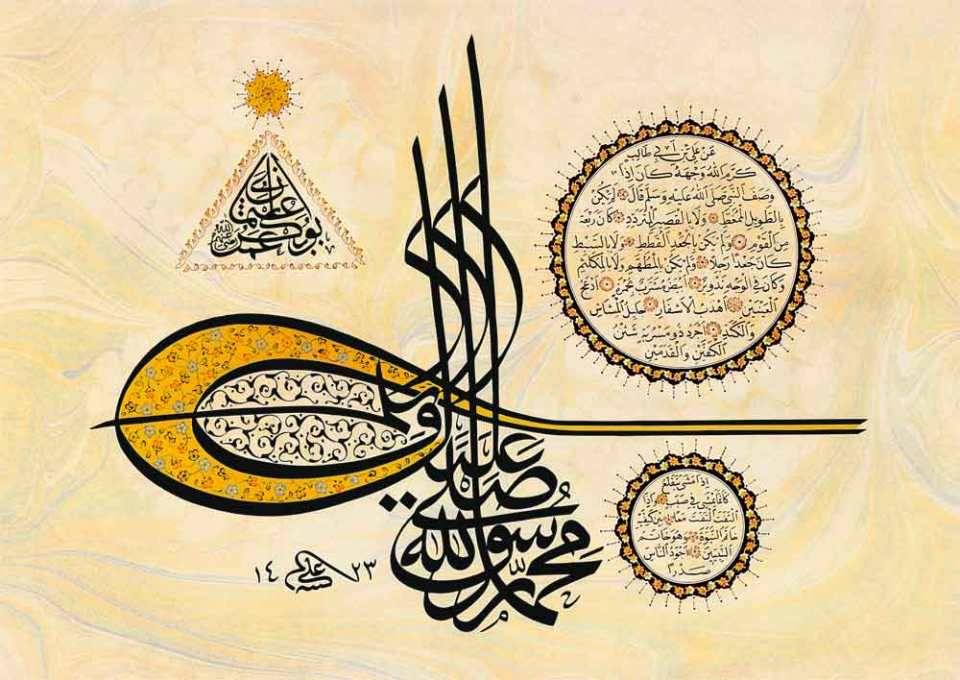 ابو بكر عمر عثمان على رضى الله
عن علي بن أبي طالب
كرم الله وجهه كان إذا
وصف النبي صلى الله عليه وسلم قال لم يكن
بالطويل الممغط ولا بالقصير المتردد كان ربعة
من القوم ولم يكن بالجعد القطط ولا بالسبط
كان جعدا رجلا ولم يكن بالمطهم ولا بالمكلثم
وكان في الوجه تدوير أبيض مشرب أدعج
العينين أهدب الأشفار جليل المشاش
والكتد أجرد ذو مسربة شثن
الكفين والقدمين
محمد رسول الله صلى عليه
إذا مشى يتقلع
كأنما يمشي في صبب إذا
التفت التفت معا بين كتفيه
خاتم النبوة وهو خاتم
النبيين أجود الناس
صدرا
علي ١٤٢٣